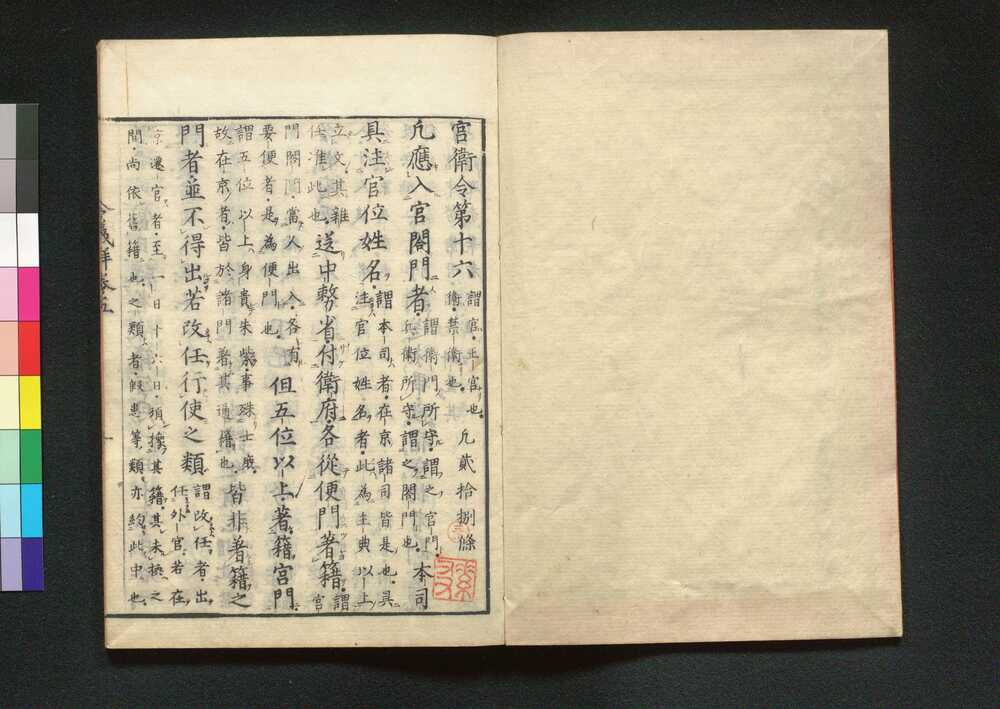 宮衛令第十六
謂宮、王宮也。
衛、禁衛也。
凡貳拾捌條
凡應入宮閤門者。
謂衛門所守。謂之宮門。
兵衛所守。謂之閤門也。
本司
具注官位姓名。
謂本司者。在京諸司皆是也。具
注官位姓名者。此為主典以上
立文。其雜
任准此也。
送中務省付衛府。各從便門著籍。
謂宮
門閤門。當人出入。各有
要便者。是為便門也。
但五位以上。著籍宮門。
謂五位以上。身貴朱紫。事殊士庶。
故在京者。皆於諸門著其通籍也。
皆非著籍之
門者。並不得出。若改任行使之類。
謂改任者。出
任外官。若在
京遷官者。至一日十六日。須換其籍。其未換之
間。尚依舊籍也。之類者。假患等類。亦約此中也。
令義解卷五